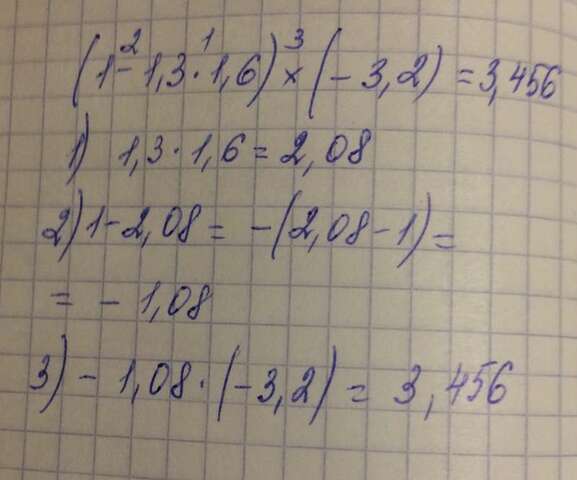 2 1 3
(1 - 1,3 · 1,6) × (- 3,2) = 3,456
1) 1,3 · 1,6 = 2,08
2) 1 - 2,08 = - (2,08 - 1) =
= - 1,08
3) - 1,08 · (-3,2) = 3,456